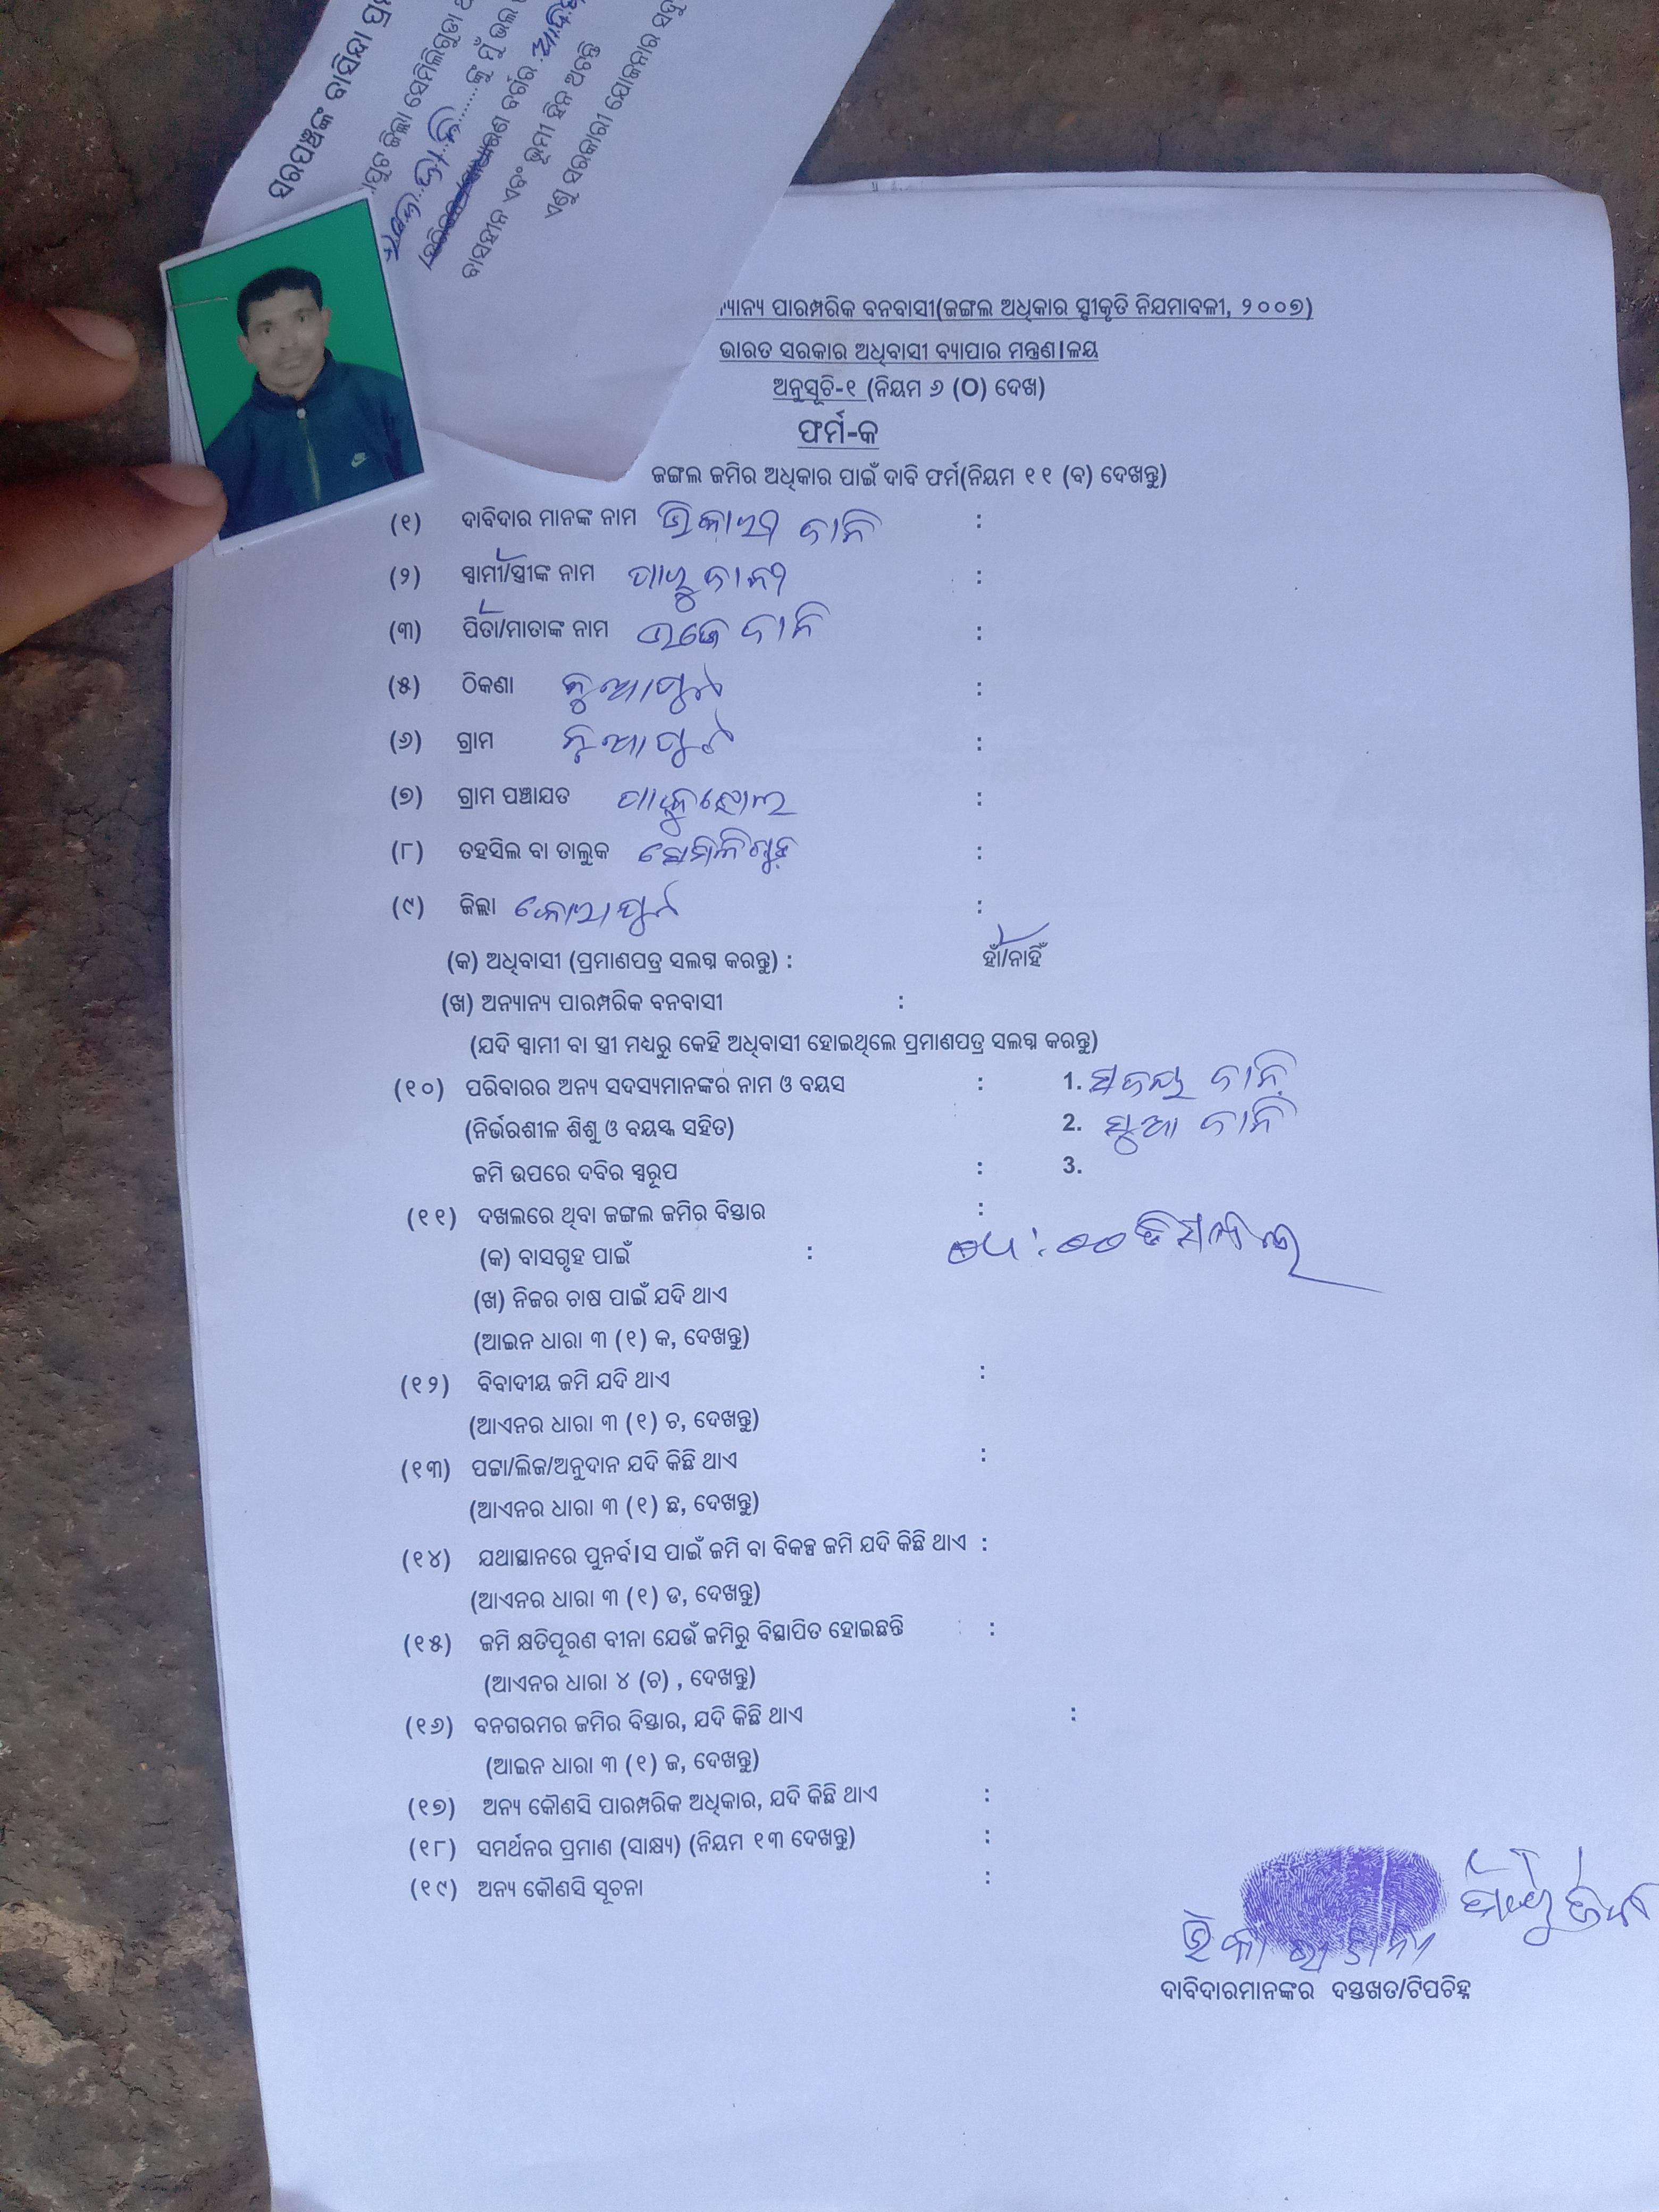 ସରପଞ୍ଚଙ୍କ ବାସିନ୍ଦା
ଜିଲ୍ଲା ସେମିଲିଗୁଡା
ଙ୍କୁ ମୁଁ ଭଲ
ବର୍ଗର
ବାସହୀନ ଏବଂ ଭୂମୀ ହିନ ଅଟନ୍ତି
ଏଣୁ ସରକାରୀ ଯୋଜନାର
ପାରମ୍ପରିକ ବନବାସୀ(ଜଙ୍ଗଲ ଅଧିକାର ସ୍ବୀକୃତି ନିଯମାବଳୀ, ୨୦୦୭)
ଭାରତ ସରକାର ଅଧିବାସୀ ବ୍ୟାପାର ମନ୍ତ୍ରଣାଳୟ
ଅନୁସୂଚି-୧ (ନିୟମ ୬ (O) ଦେଖ)
ଫର୍ମ-କ
ଜଙ୍ଗଲ ଜମିର ଅଧିକାର ପାଇଁ ଦାବି ଫର୍ମ(ନିୟମ ୧୧ (ବ) ଦେଖନ୍ତୁ)
(୧) ଦାବିଦାର ମାନଙ୍କ ନାମ ଭିକାରୀ ଜାନି :
(୨) ସ୍ଵାମୀ/ସ୍ତ୍ରୀଙ୍କ ନାମ ଜାନୀ :
(୩) ପିତା/ମାତାଙ୍କ ନାମ ଜାନି :
(୫) ଠିକଣା ନୁଆପୁଟ :
(୬) ଗ୍ରାମ ନୁଆପୁଟ :
(୭) ଗ୍ରାମ ପଞ୍ଚାଯତ :
(୮) ତହସିଲ ବା ତାଲୁକ ସେମିଳିଗୁଡ଼ା :
(୯) ଜିଲ୍ଲା କୋରାପୁଟ :
(କ) ଅଧିବାସୀ (ପ୍ରମାଣପତ୍ର ସଲଗ୍ନ କରନ୍ତୁ) : ହାଁ/ନାହିଁ
(ଖ) ଅନ୍ୟାନ୍ୟ ପାରମ୍ପରିକ ବନବାସୀ :
(ଯଦି ସ୍ଵାମୀ ବା ସ୍ତ୍ରୀ ମଧ୍ୟରୁ କେହି ଅଧିବାସୀ ହୋଇଥିଲେ ପ୍ରମାଣପତ୍ର ସଲଗ୍ନ କରନ୍ତୁ)
(୧୦) ପରିବାରର ଅନ୍ୟ ସଦସ୍ୟମାନଙ୍କର ନାମ ଓ ବୟସ : 1. ଜାନି
(ନିର୍ଭରଶୀଳ ଶିଶୁ ଓ ବୟସ୍କ ସହିତ) 2. ଜାନି
ଜମି ଉପରେ ଦବିର ସ୍ୱରୂପ : 3.
(୧୧) ଦଖଲରେ ଥିବା ଜଙ୍ଗଲ ଜମିର ବିସ୍ତାର :
(କ) ବାସଗୃହ ପାଇଁ :
(ଖ) ନିଜର ଚାଷ ପାଇଁ ଯଦି ଥାଏ
(ଆଇନ ଧାରା ୩ (୧) କ, ଦେଖନ୍ତୁ)
(୧୨) ବିବାଦୀୟ ଜମି ଯଦି ଥାଏ :
(ଆଏନର ଧାରା ୩ (୧) ଚ, ଦେଖନ୍ତୁ)
(୧୩) ପଟ୍ଟା/ଲିଜ/ଅନୁଦାନ ଯଦି କିଛି ଥାଏ :
(ଆଏନର ଧାରା ୩ (୧) ଛ, ଦେଖନ୍ତୁ)
(୧୪) ଯଥାସ୍ଥାନରେ ପୁନର୍ବାସ ପାଇଁ ଜମି ବା ବିକଳ୍ପ ଜମି ଯଦି କିଛି ଥାଏ :
(ଆଏନର ଧାରା ୩ (୧) ଡ, ଦେଖନ୍ତୁ)
(୧୫) ଜମି କ୍ଷତିପୂରଣ ବୀନା ଯେଉଁ ଜମିରୁ ବିସ୍ଥାପିତ ହୋଇଛନ୍ତି :
(ଆଏନର ଧାରା ୪ (ଚ) , ଦେଖନ୍ତୁ)
(୧୬) ବନଗରାମର ଜମିର ବିସ୍ତାର, ଯଦି କିଛି ଥାଏ :
(ଆଇନ ଧାରା ୩ (୧) ଜ, ଦେଖନ୍ତୁ)
(୧୭) ଅନ୍ୟ କୌଣସି ପାରମ୍ପରିକ ଅଧିକାର, ଯଦି କିଛି ଥାଏ :
(୧୮) ସମର୍ଥନର ପ୍ରମାଣ (ସାକ୍ଷ୍ୟ) (ନିୟମ ୧୩ ଦେଖନ୍ତୁ) :
(୧୯) ଅନ୍ୟ କୌଣସି ସୂଚନା :
ଭିକାରୀ ଜାନୀ
ଦାବିଦାରମାନଙ୍କର ଦସ୍ତଖତ/ଟିପଚିହ୍ନ